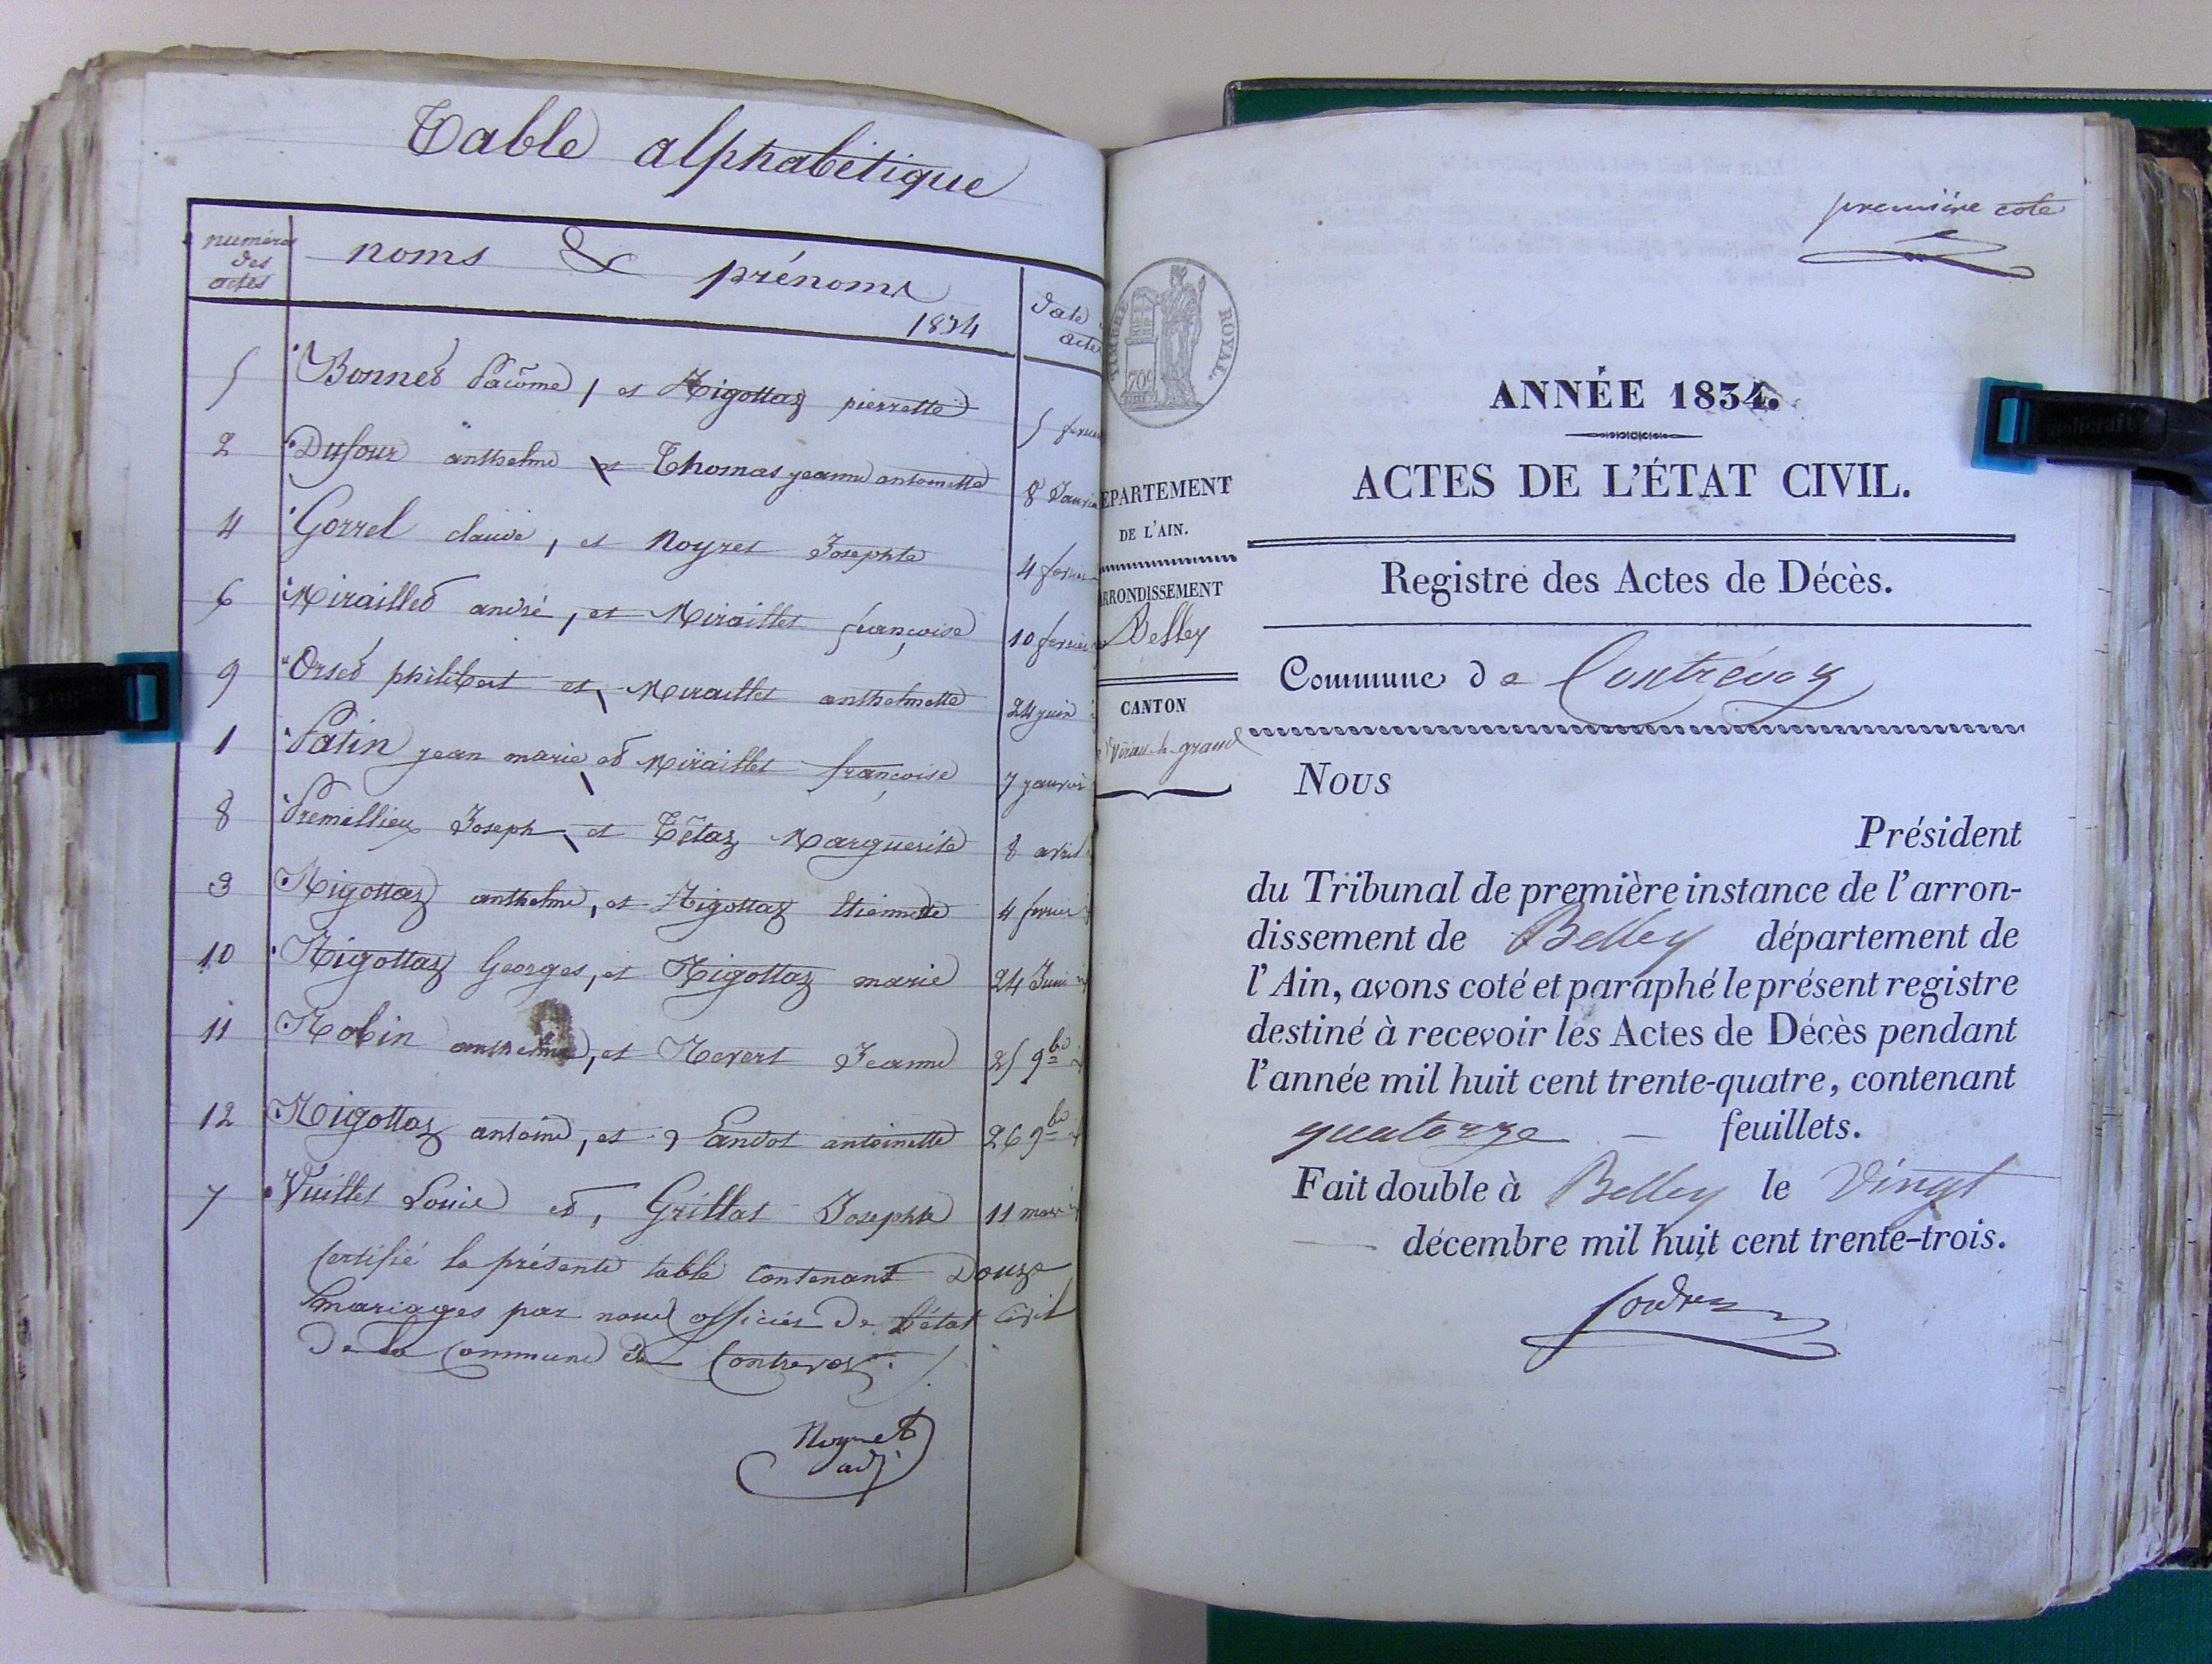 Table alphabétique
numéros des actes
noms & prénoms
1834
date
actes
5 Bonned Pacôme, et Rigottaz pierrette 5 fevrier
2 Dufour anthelme et Thomas jeanne antoinette 8 Janvier
4 Gorrel claude, et Noyret Josephte 4 fevrier
6 Miraillet andré, et Miraillet françoise 10 fevrier
9 Orset philibert et, Miraillet anthelmette 24 juin
1 Patin jean marie et Miraillet françoise 7 janvier
8 Premillieu Joseph, et Tétaz Marguerite 8 avril
3 Rigottaz anthelme, et Rigottaz Etiennette 4 fevrier
10 Rigottaz Georges, et Rigottaz marie 24 Juin
11 Robin anthelme, et Revert Jeanne 25 9bre
12 Rigottaz antoine, et Landot antoinette 26 9bre
7 Vuillet Louis et, Grillat Josephte 11 mars
Certifié la présente table contenant Douze
mariages par nous officier de l'état civil
De la Commune de Contrevoz.
Noyret
adj
première cote
TIMBRE ROYAL.
70c
ANNÉE 1834.
ACTES DE L'ÉTAT CIVIL.
EPARTEMENT
DE L'AIN.
RRONDISSEMENT
Belley
CANTON
Virieu le grand
Registre des Actes de Décès.
Commune de Contrevoz
Nous
Président
du Tribunal de première instance de l'arron-
dissement de Belley département de
l'Ain, avons coté et paraphé le présent registre
destiné à recevoir les Actes de Décès pendant
l'année mil huit cent trente-quatre, contenant
quatorze — feuillets.
Fait double à Belley le Vingt
décembre mil huit cent trente-trois.